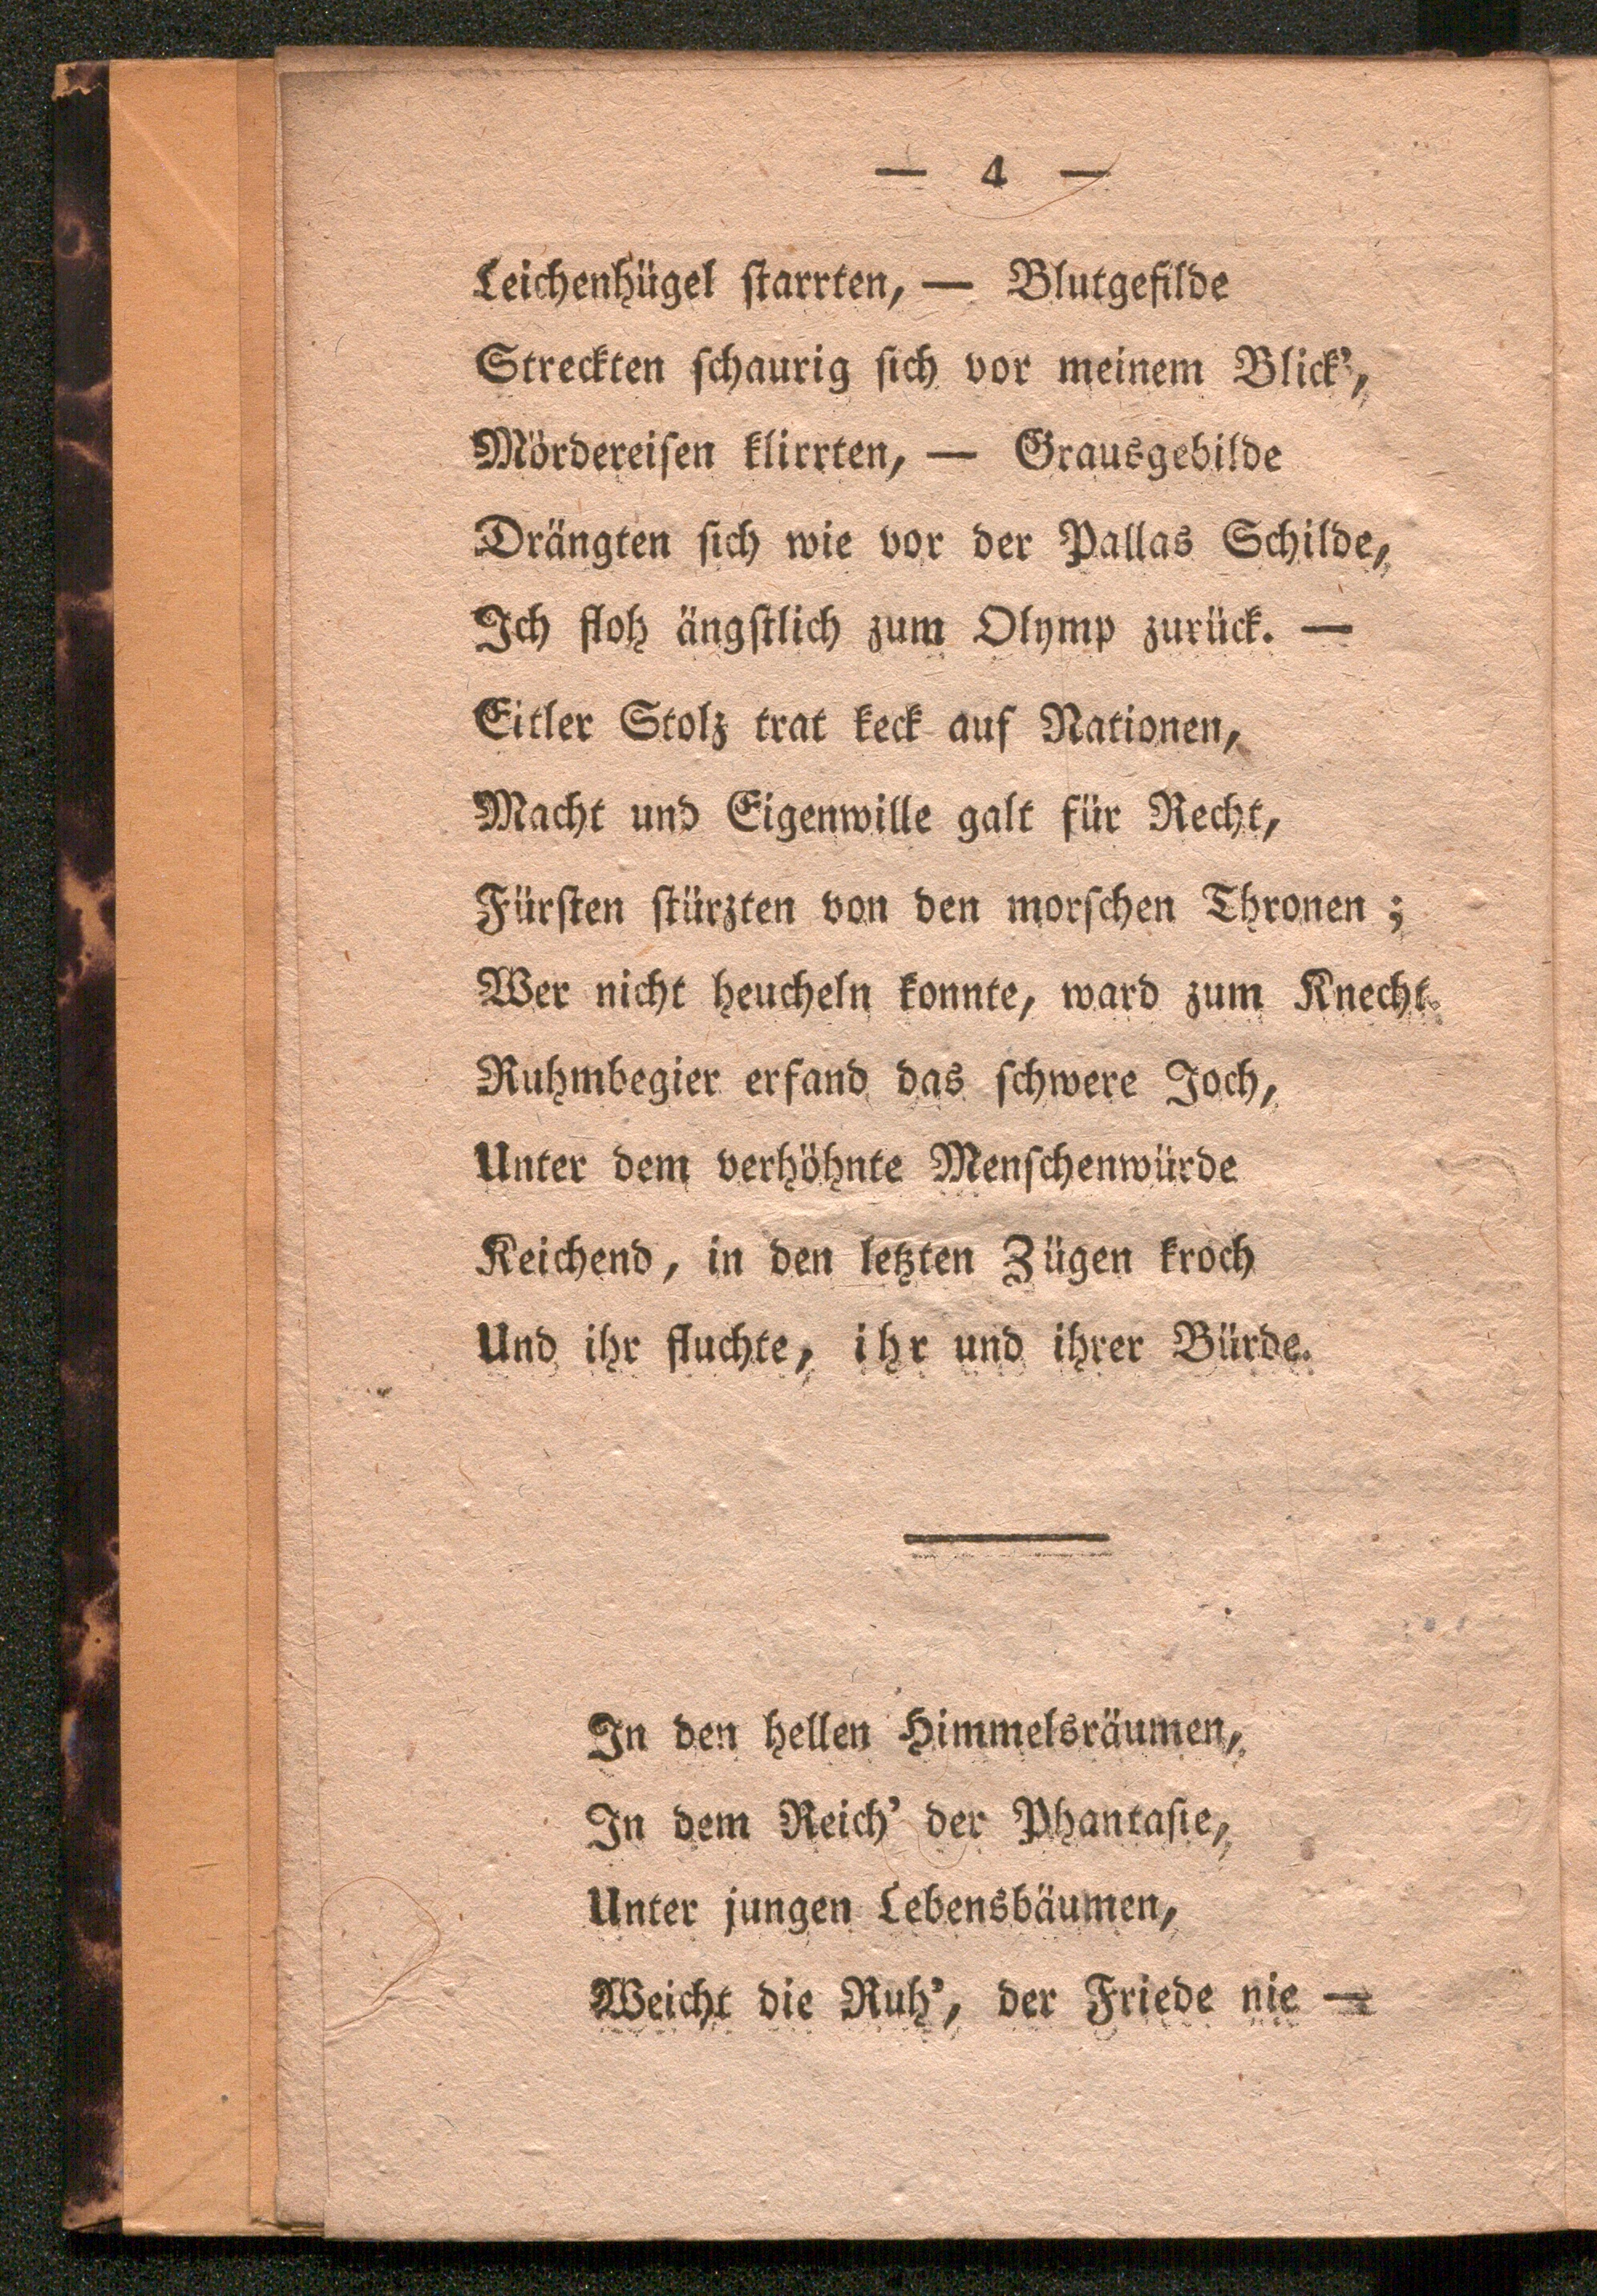 — 4 —
Leichenhügel ſtarrten, — Blutgefilde
Streckten ſchaurig ſich vor meinem Blick’,
Mördereiſen klirrten, — Grausgebilde
Drängten ſich wie vor der Pallas Schilde,
Ich floh ängſtlich zum Olymp zurück. —
Eitler Stolz trat keck auf Nationen,
Macht und Eigenwille galt für Recht,
Fürſten ſtürzten von den morſchen Thronen ;
Wer nicht heucheln konnte, ward zum Knecht.
Ruhmbegier erfand das ſchwere Joch,
Unter dem verhöhnte Menſchenwürde
Keichend, in den letzten Zügen kroch
Und ihr fluchte, ihr und ihrer Bürde.
In den hellen Himmelsräumen,
In dem Reich’ der Phantaſie,
Unter jungen Lebensbäumen,
Weicht die Ruh’, der Friede nie —